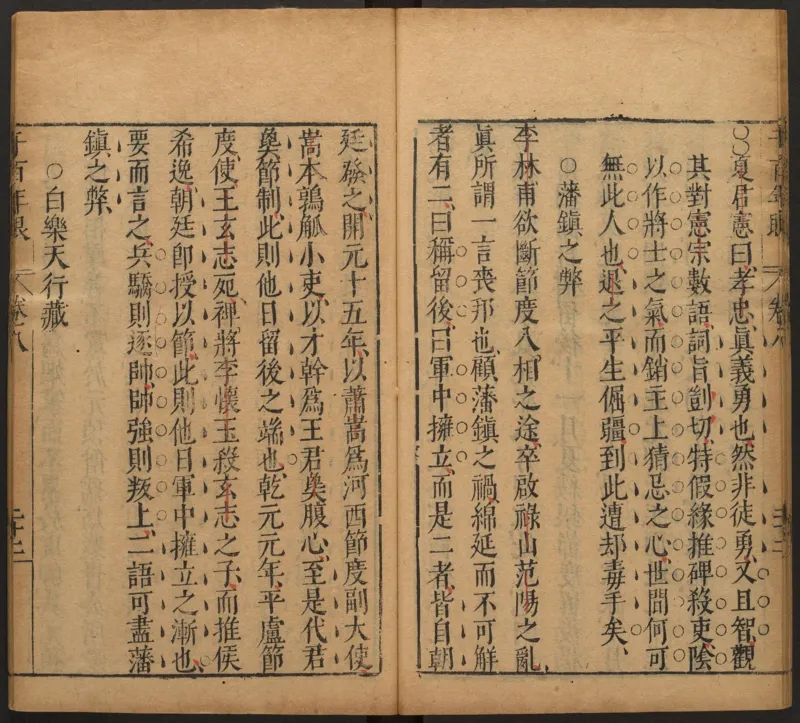 夏君憲曰、孝忠、真義勇也、然非徒勇、又且智、觀
其對憲宗數語、詞旨剴切、特假緣推碑殺吏、陰
以作將士之氣、而銷主上猜忌之心、世間何可
無此人也、退之平生倔疆、到此遭却毒手矣、
○藩鎮之弊
李林甫欲斷節度入相之途、卒啟祿山范陽之亂、
真所謂一言喪邦也、顧藩鎮之禍、綿延而不可解
者有二、曰稱留後、曰軍中擁立、而是二者、皆自朝
千百年眼 卷八 二十二
廷發之、開元十五年、以蕭嵩為河西節度副大使、
嵩本鶉觚小吏、以才幹為王君㚟腹心、至是代君
㚟節制、此則他日留後之端也、乾元元年、平盧節
度使王玄志死、裨將李懷玉殺玄志之子、而推侯
希逸、朝廷即授以節、此則他日軍中擁立之漸也、
要而言之、兵驕則逐帥、帥強則叛上、二語可盡藩
鎮之弊、
○白樂天行藏
千百年眼 卷八